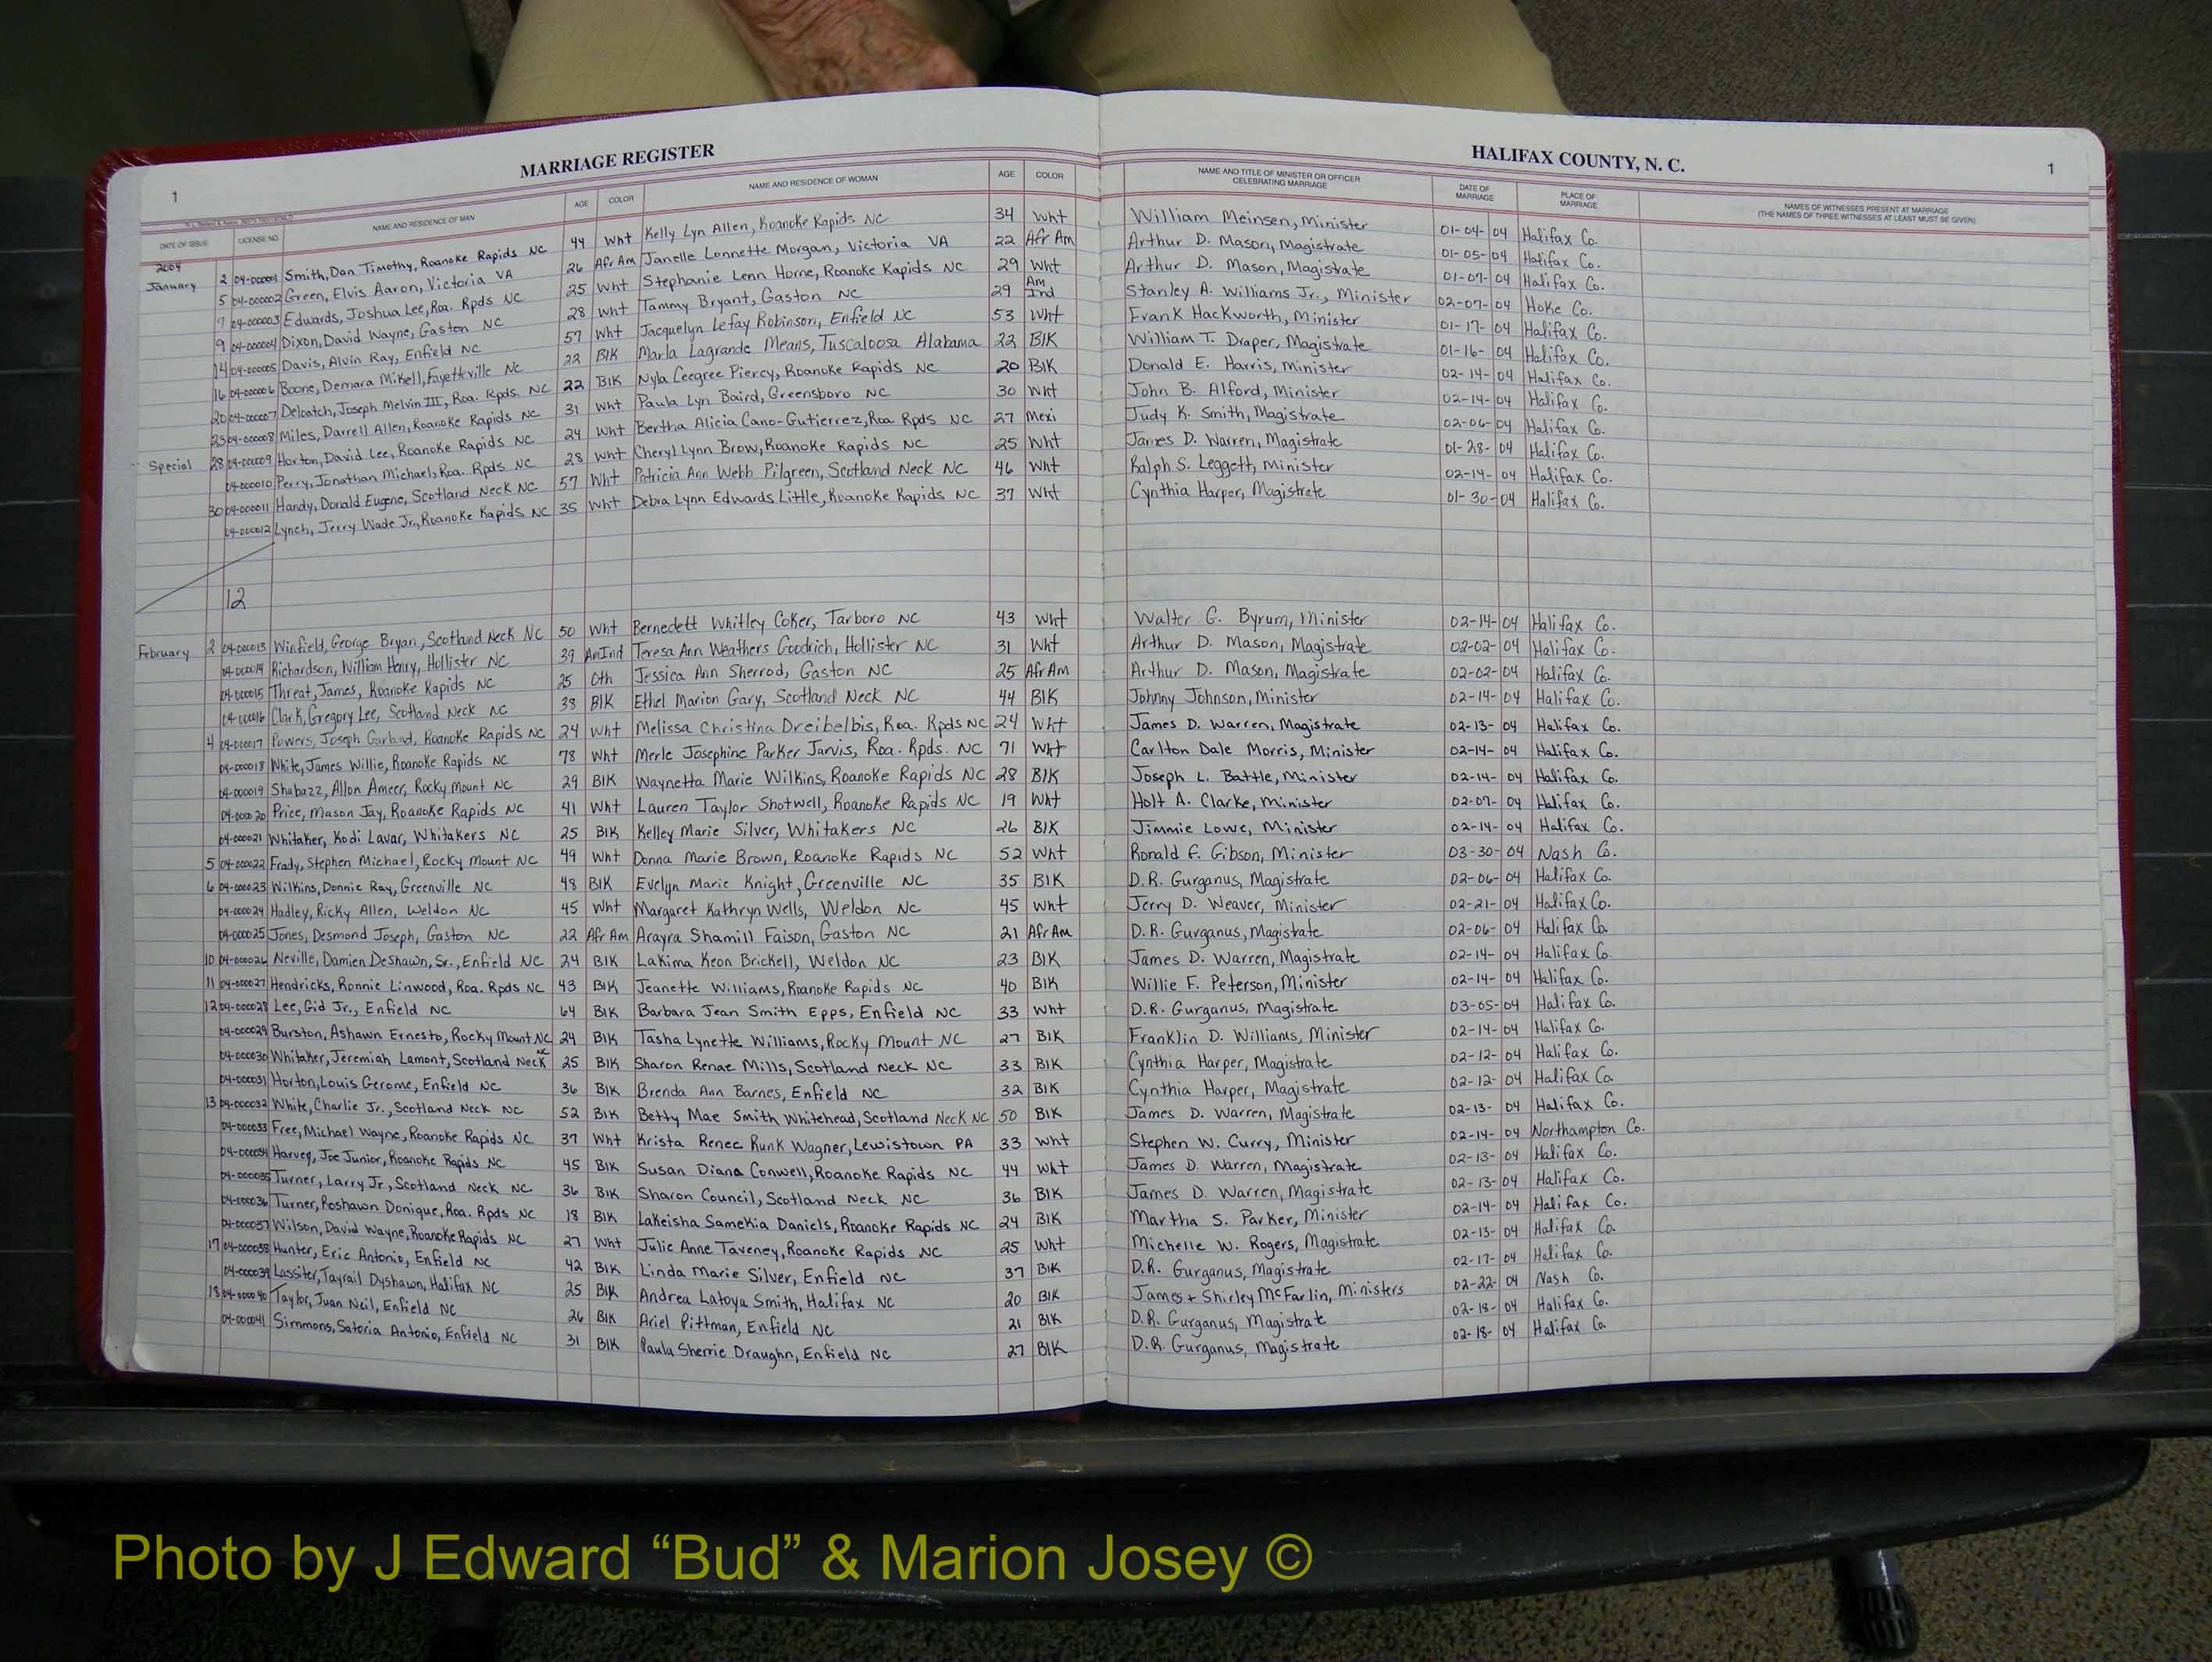 MARRIAGE REGISTER
HALIFAX COUNTY, N. C.
1
1
DATE OF ISSUE LICENSE NO. NAME AND RESIDENCE OF MAN AGE COLOR NAME AND RESIDENCE OF WOMAN AGE COLOR NAME AND TITLE OF MINISTER OR OFFICER CELEBRATING MARRIAGE DATE OF MARRIAGE PLACE OF MARRIAGE NAMES OF WITNESSES PRESENT AT MARRIAGE (THE NAMES OF THREE WITNESSES AT LEAST MUST BE GIVEN)
2004
January 2 04-000001 Smith, Dan Timothy, Roanoke Rapids NC 44 Wht Kelly Lyn Allen, Roanoke Rapids NC 34 Wht William Meinsen, Minister 01-04-04 Halifax Co.
5 04-000002 Green, Elvis Aaron, Victoria VA 26 Afr Am Janelle Lonnette Morgan, Victoria VA 22 Afr Am Arthur D. Mason, Magistrate 01-05-04 Halifax Co.
7 04-000003 Edwards, Joshua Lee, Roa. Rpds NC 25 Wht Stephanie Lenn Horne, Roanoke Rapids NC 29 Wht Arthur D. Mason, Magistrate 01-07-04 Halifax Co.
9 04-000004 Dixon, David Wayne, Gaston NC 28 Wht Tammy Bryant, Gaston NC 29 Am Ind Stanley A. Williams Jr., Minister 02-07-04 Hoke Co.
14 04-000005 Davis, Alvin Ray, Enfield NC 57 Wht Jacquelyn Lefay Robinson, Enfield NC 53 Wht Frank Hackworth, Minister 01-17-04 Halifax Co.
16 04-000006 Boone, Demara Mikell, Fayetteville NC 22 Blk Marla Lagrande Means, Tuscaloosa Alabama 22 Blk William T. Draper, Magistrate 01-16-04 Halifax Co.
20 04-000007 Deloatch, Joseph Melvin III, Roa. Rpds. NC 22 Blk Nyla Ceegree Piercy, Roanoke Rapids NC 20 Blk Donald E. Harris, Minister 02-14-04 Halifax Co.
23 04-000008 Miles, Darrell Allen, Roanoke Rapids NC 31 Wht Paula Lyn Baird, Greensboro NC 30 Wht John B. Alford, Minister 02-14-04 Halifax Co.
Special 28 04-000009 Horton, David Lee, Roanoke Rapids NC 24 Wht Bertha Alicia Cano-Gutierrez, Roa Rpds NC 27 Mexi Judy K. Smith, Magistrate 02-06-04 Halifax Co.
04-000010 Perry, Jonathan Michael, Roa. Rpds NC 28 Wht Cheryl Lynn Brow, Roanoke Rapids NC 25 Wht James D. Warren, Magistrate 01-28-04 Halifax Co.
30 04-000011 Handy, Donald Eugene, Scotland Neck NC 57 Wht Patricia Ann Webb Pilgreen, Scotland Neck NC 46 Wht Ralph S. Leggett, Minister 02-14-04 Halifax Co.
04-000012 Lynch, Jerry Wade Jr., Roanoke Rapids NC 35 Wht Debra Lynn Edwards Little, Roanoke Rapids NC 37 Wht Cynthia Harper, Magistrate 01-30-04 Halifax Co.
12
February 2 04-000013 Winfield, George Bryan, Scotland Neck NC 50 Wht Bernedett Whitley Coker, Tarboro NC 43 Wht Walter G. Byrum, Minister 02-14-04 Halifax Co.
04-000014 Richardson, William Henry, Hollister NC 39 Am Ind Teresa Ann Weathers Goodrich, Hollister NC 31 Wht Arthur D. Mason, Magistrate 02-02-04 Halifax Co.
04-000015 Threat, James, Roanoke Rapids NC 25 Oth Jessica Ann Sherrod, Gaston NC 25 Afr Am Arthur D. Mason, Magistrate 02-02-04 Halifax Co.
04-000016 Clark, Gregory Lee, Scotland Neck NC 38 Blk Ethel Marion Gary, Scotland Neck NC 44 Blk Johnny Johnson, Minister 02-14-04 Halifax Co.
4 04-000017 Powers, Joseph Garland, Roanoke Rapids NC 24 Wht Melissa Christina Dreibelbis, Roa. Rpds NC 24 Wht James D. Warren, Magistrate 02-13-04 Halifax Co.
04-000018 White, James Willie, Roanoke Rapids NC 78 Wht Merle Josephine Parker Jarvis, Roa. Rpds. NC 71 Wht Carlton Dale Morris, Minister 02-14-04 Halifax Co.
04-000019 Shabazz, Allon Ameer, Rocky Mount NC 29 Blk Waynetta Marie Wilkins, Roanoke Rapids NC 28 Blk Joseph L. Battle, Minister 02-14-04 Halifax Co.
04-000020 Price, Mason Jay, Roanoke Rapids NC 41 Wht Lauren Taylor Shotwell, Roanoke Rapids NC 19 Wht Holt A. Clarke, Minister 02-07-04 Halifax Co.
04-000021 Whitaker, Kodi Lavar, Whitakers NC 25 Blk Kelley Marie Silver, Whitakers NC 26 Blk Jimmie Lowe, Minister 02-14-04 Halifax Co.
5 04-000022 Frady, Stephen Michael, Rocky Mount NC 49 Wht Donna Marie Brown, Roanoke Rapids NC 52 Wht Ronald F. Gibson, Minister 03-30-04 Nash Co.
6 04-000023 Wilkins, Donnie Ray, Greenville NC 48 Blk Evelyn Marie Knight, Greenville NC 35 Blk D.R. Gurganus, Magistrate 02-06-04 Halifax Co.
04-000024 Hadley, Ricky Allen, Weldon NC 45 Wht Margaret Kathryn Wells, Weldon NC 45 Wht Jerry D. Weaver, Minister 02-21-04 Halifax Co.
04-000025 Jones, Desmond Joseph, Gaston NC 22 Afr Am Arayra Shamill Faison, Gaston NC 21 Afr Am D.R. Gurganus, Magistrate 02-06-04 Halifax Co.
10 04-000026 Neville, Damien DeShawn, Sr., Enfield NC 24 Blk Lakima Keon Brickell, Weldon NC 23 Blk James D. Warren, Magistrate 02-14-04 Halifax Co.
11 04-000027 Hendricks, Ronnie Linwood, Roa. Rpds NC 43 Blk Jeanette Williams, Roanoke Rapids NC 40 Blk Willie F. Peterson, Minister 02-14-04 Halifax Co.
12 04-000028 Lee, Gid Jr., Enfield NC 64 Blk Barbara Jean Smith Epps, Enfield NC 33 Wht D.R. Gurganus, Magistrate 03-05-04 Halifax Co.
04-000029 Burston, Ashawn Ernesto, Rocky Mount NC 24 Blk Tasha Lynette Williams, Rocky Mount NC 27 Blk Franklin D. Williams, Minister 02-14-04 Halifax Co.
04-000030 Whitaker, Jeremiah Lamont, Scotland Neck NC 25 Blk Sharon Renae Mills, Scotland Neck NC 33 Blk Cynthia Harper, Magistrate 02-12-04 Halifax Co.
04-000031 Horton, Louis Gerome, Enfield NC 36 Blk Brenda Ann Barnes, Enfield NC 32 Blk Cynthia Harper, Magistrate 02-12-04 Halifax Co
13 04-000032 White, Charlie Jr., Scotland Neck NC 52 Blk Betty Mae Smith Whitehead, Scotland Neck NC 50 Blk James D. Warren, Magistrate 02-13-04 Halifax Co.
04-000033 Free, Michael Wayne, Roanoke Rapids NC 37 Wht Krista Renee Runk Wagner, Lewistown PA 33 Wht Stephen W. Curry, Minister 02-14-04 Northampton Co.
04-000034 Harvey, Joe Junior, Roanoke Rapids NC 45 Blk Susan Diana Conwell, Roanoke Rapids NC 44 Wht James D. Warren, Magistrate 02-13-04 Halifax Co.
04-000035 Turner, Larry Jr, Scotland Neck NC 36 Blk Sharon Council, Scotland Neck NC 36 Blk James D. Warren, Magistrate 02-13-04 Halifax Co.
04-000036 Turner, Roshawn Donique, Roa. Rpds NC 18 Blk Lakeisha Samekia Daniels, Roanoke Rapids NC 24 Blk Martha S. Parker, Minister 02-14-04 Halifax Co.
04-000037 Wilson, David Wayne, Roanoke Rapids NC 27 Wht Julie Anne Taveney, Roanoke Rapids NC 25 Wht Michelle W. Rogers, Magistrate 02-13-04 Halifax Co.
17 04-000038 Hunter, Eric Antonio, Enfield NC 42 Blk Linda Marie Silver, Enfield NC 37 Blk D.R. Gurganus, Magistrate 02-17-04 Halifax Co.
04-000039 Lassiter, Tayrail Dyshawn, Halifax NC 25 Blk Andrea Latoya Smith, Halifax NC 20 Blk James + Shirley McFarlin, Ministers 02-22-04 Nash Co.
18 04-000040 Taylor, Juan Neil, Enfield NC 26 Blk Ariel Pittman, Enfield NC 21 Blk D.R. Gurganus, Magistrate 02-18-04 Halifax Co.
04-000041 Simmons, Satoria Antonio, Enfield NC 31 Blk Paula Sherrie Draughn, Enfield NC 27 Blk D.R. Gurganus, Magistrate 02-18-04 Halifax Co.
Photo by J Edward “Bud” & Marion Josey ©